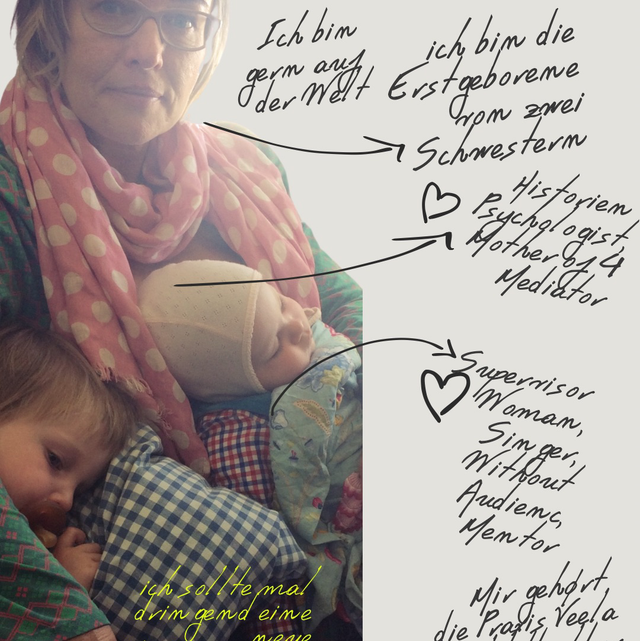 Ich bin
gern auf
der Welt
ich bin die
Erstgeborene
von zwei
Schwestern
Historien
Psychologist,
Mother of 4
Mediator
Supervisor
Woman,
Singer,
Without
Audienc,
Mentor
Mir gehört
die Praxis Veela
ich sollte mal
dringend eine
neue